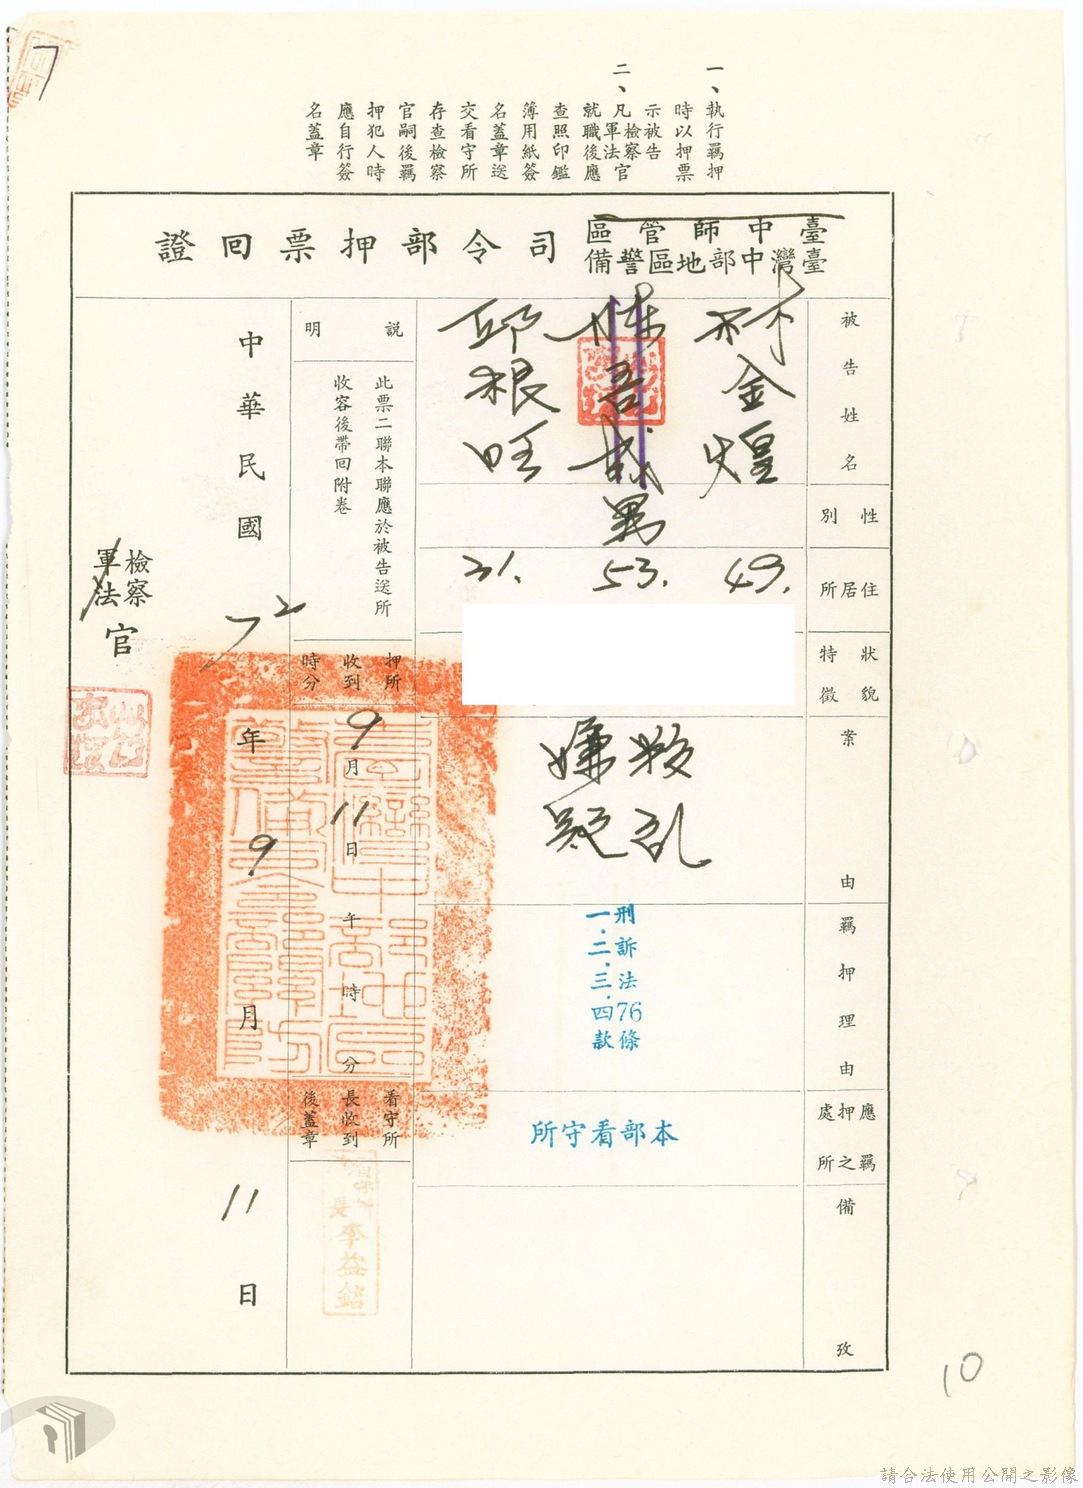 一、執行羈押
時以押票
示被告
二、凡檢察官
軍法官
就職後應
查照印鑑
簿用紙簽
名蓋章送
交看守所
存查檢察
官嗣後羈
押犯人時
應自行簽
名蓋章
臺中師管區
臺灣中部地區警備
司令部押票回證
被告姓名
林金煌
陳吾成
邱根旺
性別
男
住居所
49.
53.
31.
狀貌
特徵
案由
叛乱
嫌疑
羈押理由
刑訴法76條
一.二.三.四款
應羈押之處所
本部看守所
備攷
說明
此票二聯本聯應於被告送所
收容後帶回附卷
押所
收到
時分
9月11日午時分
看守所
長收到
後蓋章
看守所
長
李益銘
中華民國72年9月11日
檢察
軍法
官
7
10
請合法使用公開之影像